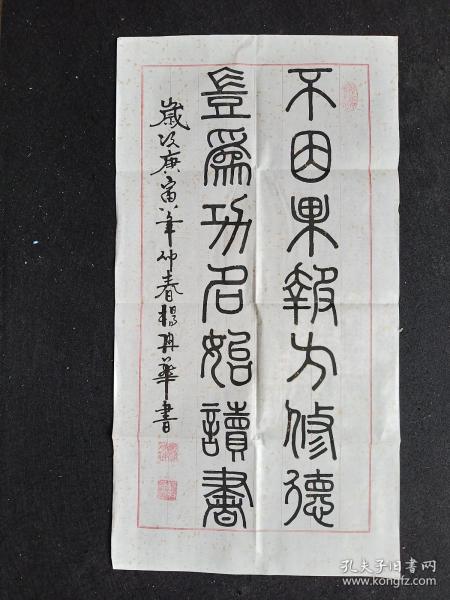 不因果報方修德
豈為功名始讀書
歲次庚寅年仲春楊再華書
孔夫子旧书网
www.kongfz.com